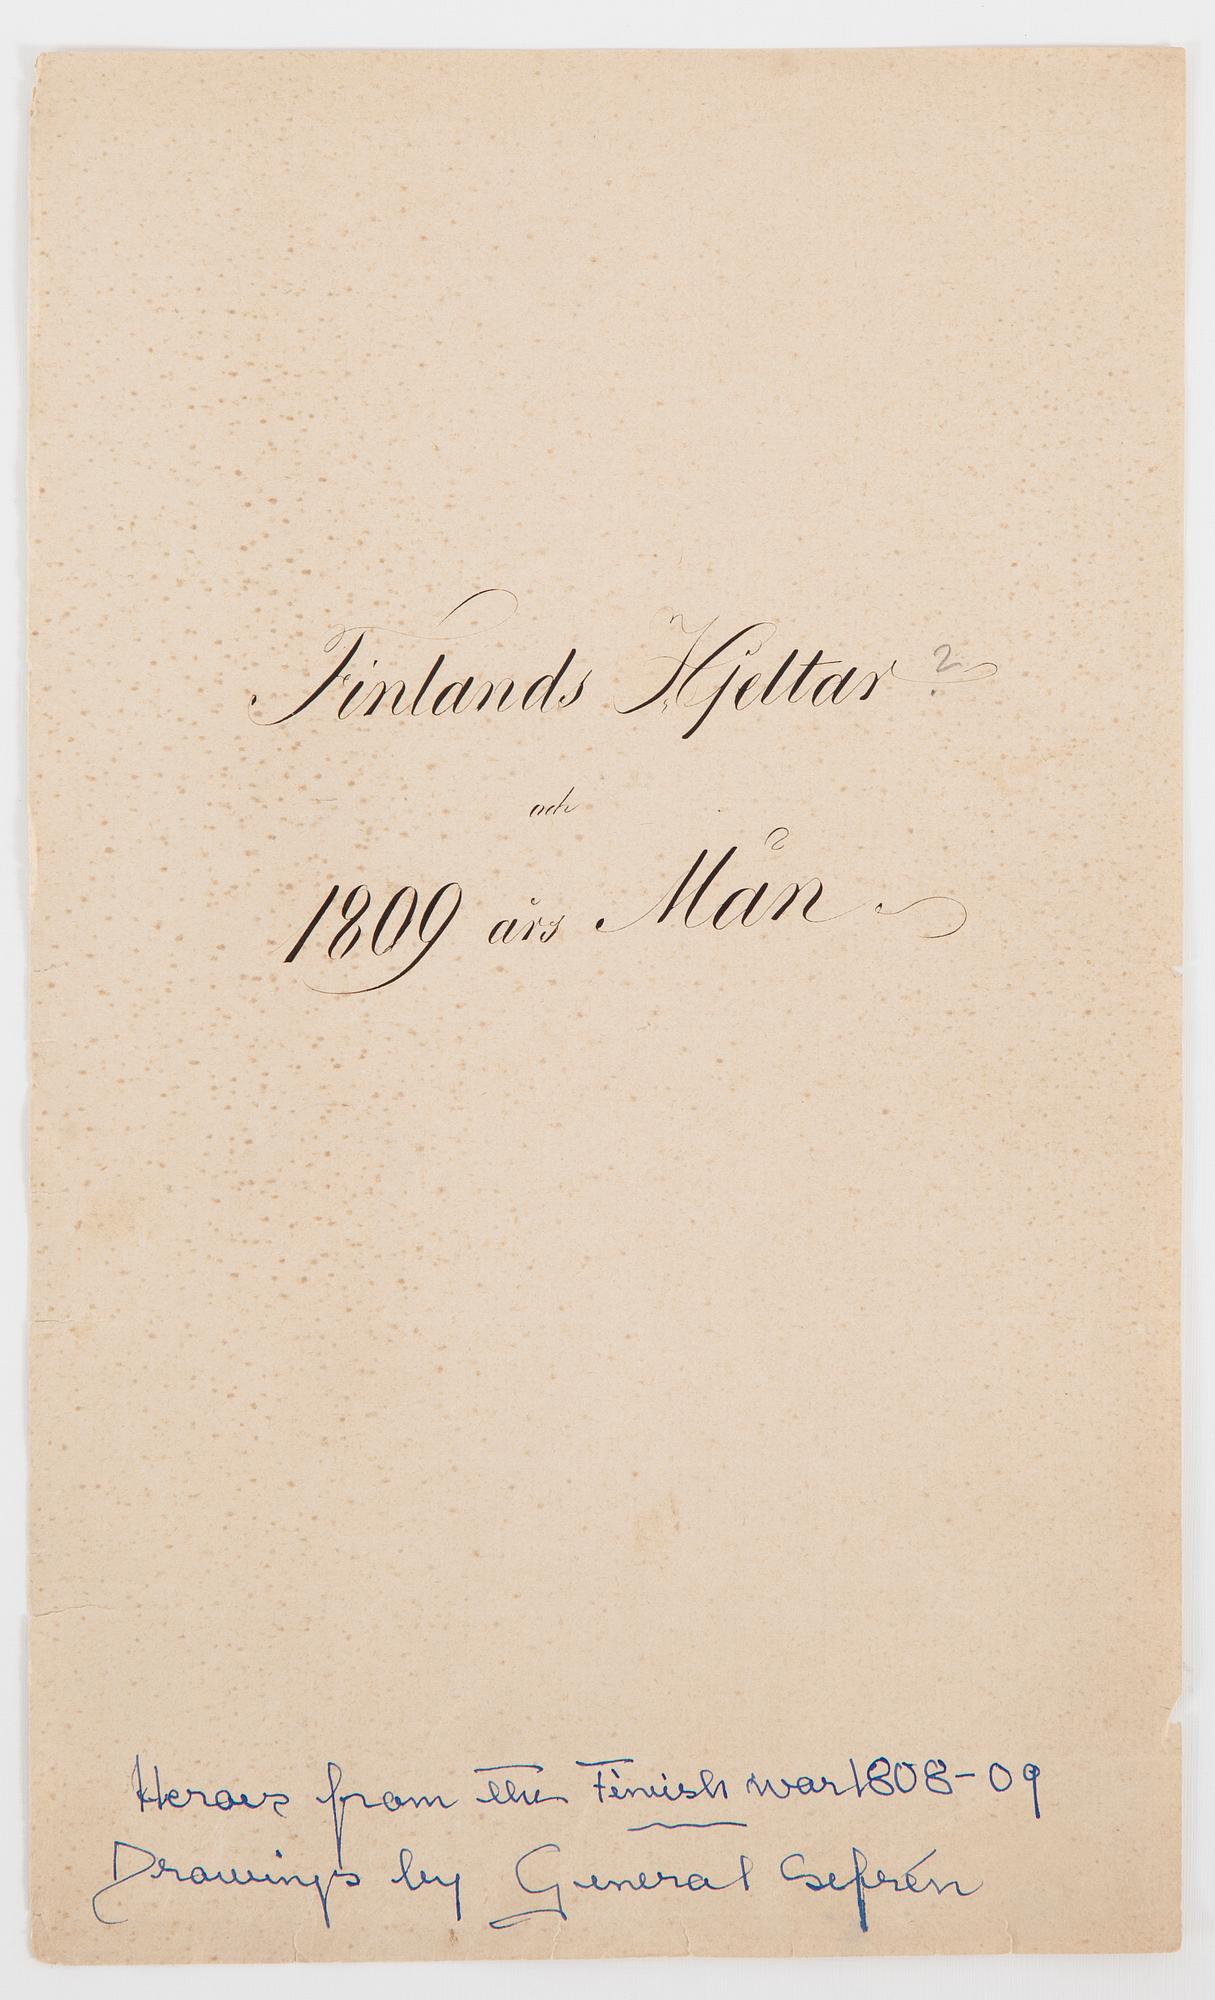 Finlands Hjeltar ?
och
1809 års Män
Heroes from the Finnish war 1808-09
Drawings by General Gefrén